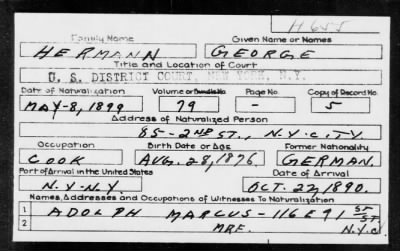 H655
Family Name Given Name or Names
HERMANN GEORGE
Title and Location of Court
U. S. DISTRICT COURT, NEW YORK, N.Y.
Date of Naturalization Volume or Bundle No. Page No. Copy of Record No.
MAY-8, 1899 79 - 5
Address of Naturalized Person
85-2ND ST., N.Y.CITY.
Occupation Birth Date or Age Former Nationality
COOK AUG. 28, 1876 GERMAN.
Port of Arrival in the United States Date of Arrival
N.Y-N.Y. OCT. 27, 1890.
Names, Addresses and Occupations of Witnesses To Naturalization
1 ADOLPH MARCUS-116 E 91 ST ST.
2 N.Y.C.